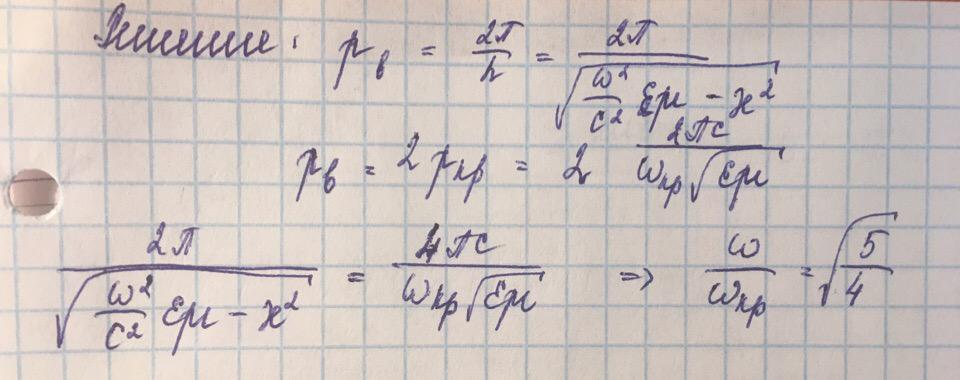 Решение: p_в = 2π/h = 2π/√(ω²/c² εμ - ϰ²)
p_в = 2 p_кр = 2 2πc/(ω_кр √(εμ))
2π/√(ω²/c² εμ - ϰ²) = 4πc/(ω_кр √(εμ)) => ω/ω_кр = √(5/4)